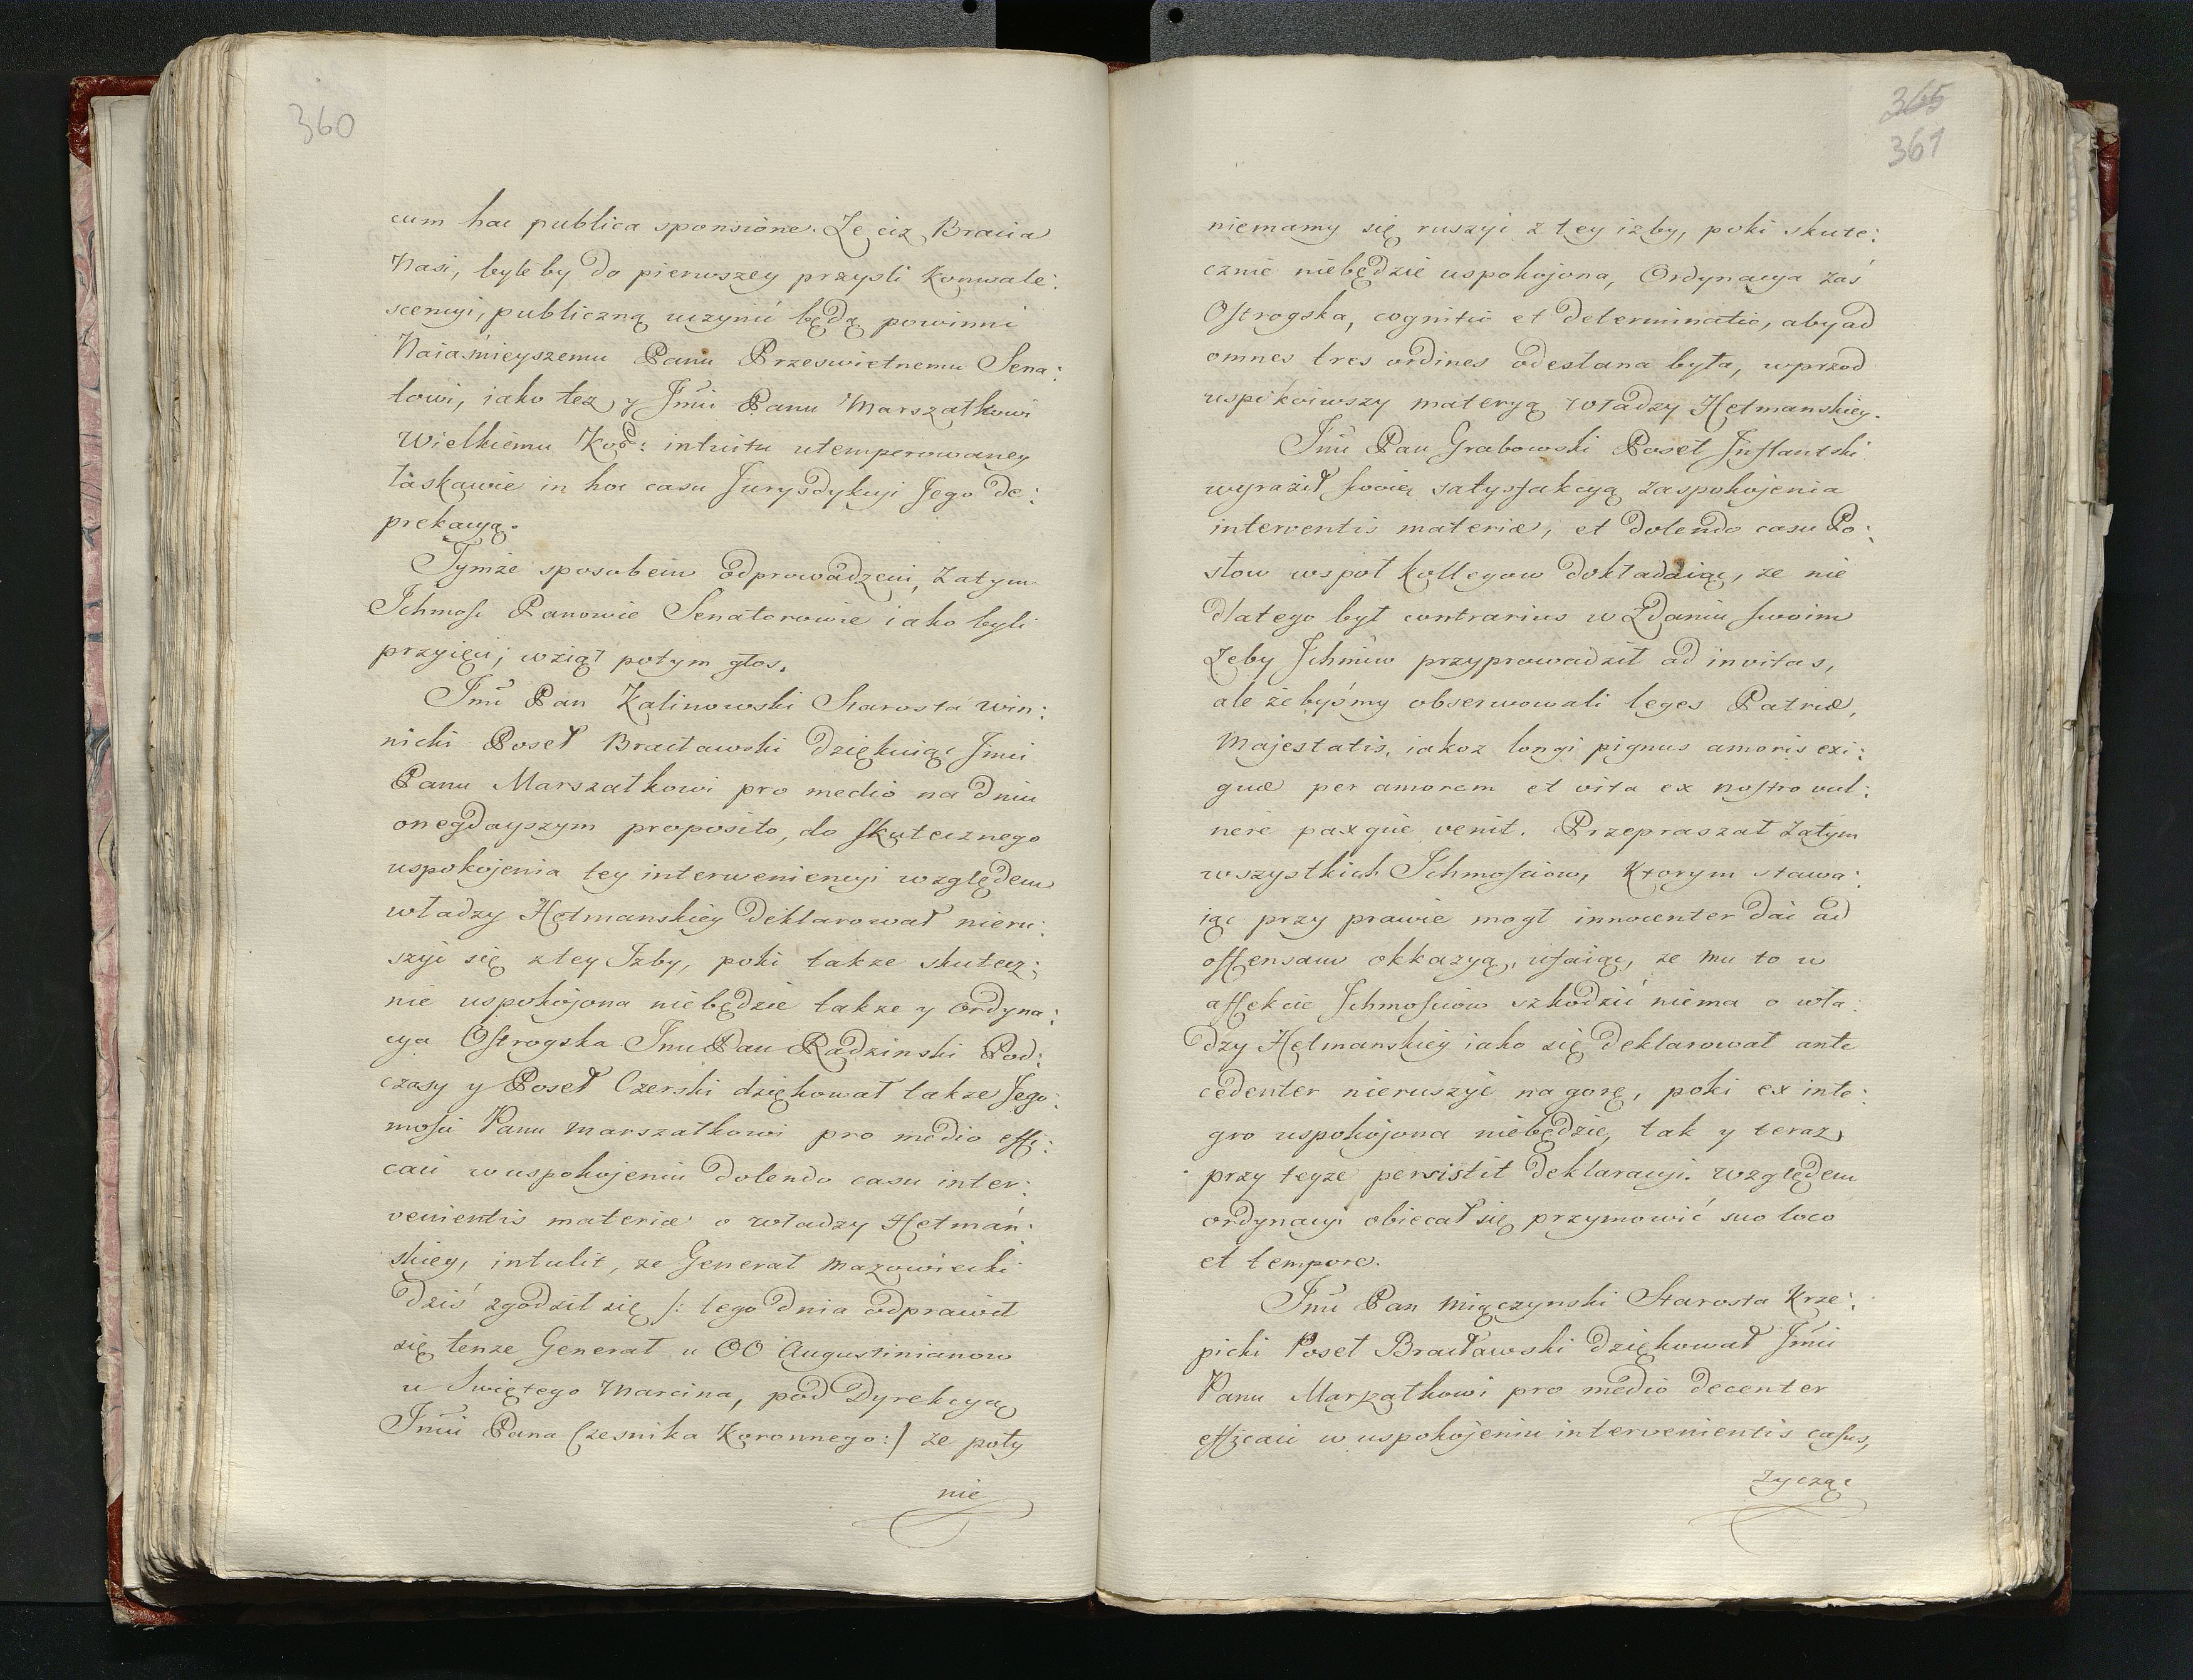 360
cum hac publica sponsione. Ze ciz Bracia
Nasi, byle by do pierwszey przysli konwale:
scencyi, publiczną uczynić będą powinni
Naiaśnieyszemu Panu Przeswietnemu Sena:
towi, iako tez y Jmći Panu Marszałkowi
Wielkiemu Kor: intuitu utemperowaney
łaskawie in hoc casu Jurysdykcyi Jego de:
prekacyą.
Tymże sposobem odprowadzeni, zatym
Ichmość Panowie Senatorowie iako byli
przyięci; wziął potym głos.
Jmć Pan Kalinowski Starosta win:
nicki Poseł Bracławski dziękuiąc Jmći
Panu Marszałkowi pro medio na dniu
onegdayszym proposito, do skutecznego
uspokojenia tey interweniencyi względem
władzy Hetmanskiey deklarował nieru:
szyć się z tey Izby, poki takze skutecz:
nie uspokojona niebędzie takze y ordyna:
cya Ostrogska Jmć Pan Radzinski Pod:
czasy y Poseł Czerski dziękował takze Jego:
mości Panu marszałkowi pro medio effi:
caci w uspokojeniu dolendo casu inter:
venientis materiæ o władzy Hetmań:
skiey, intulit, ze Generał mazowiecki
dziś zgodził się /: tego dnia odprawił
się tenze Generał u OO Augustinianow
u Swiętego Marcina, pod Dyrekcyą
Jmći Pana Czesnika Koronnego:/ ze poty
nie
365
361
niemamy się ruszyć z tey izby, poki skute:
cznie niebędzie uspokojona, Ordynacya zaś
Ostrogska, cognitio et determinatio, aby ad
omnes tres ordines odesłana była, wprzod
uspokoiwszy materyą władzy Hetmanskiey.
Jmć Pan Grabowski Poseł Inflantski
wyraził swoię satysfakcyą zaspokojenia
interventis materiæ, et dolendo casu Po:
słow wspoł kollegow dokładaiąc, ze nie
dlatego był contrarius w zdaniu swoim
zeby Ichmćiow przyprowadził ad invitas,
ale żebyśmy obserwowali leges Patriæ,
Majestatis, iakoz longi pignus amoris exi:
guæ per amorem et vita ex nostro vul:
nere paxque venit. Przepraszał zatym
wszystkich Ichmościow, ktorym stawa:
iąc przy prawie mogł innocenter dać ad
offensam okkazyą, ufaiąc, ze mu to w
affekcie Ichmościow szkodzić niema o wła:
dzy Hetmanskiey iako się deklarował ante
cedenter nieruszyć na gorę, poki ex inte:
gro uspokojona niebędzie, tak y teraz
przy teyze persistit deklaracyi. względem
ordynacyi obiecał się przymowić suo loco
et tempore.
Jmć Pan Miączynski Starosta Krze:
picki Poseł Bracławski dziękował Jmći
Panu Marszałkowi pro medio decenter
efficaci w uspokojeniu intervenientis casus,
zycząc